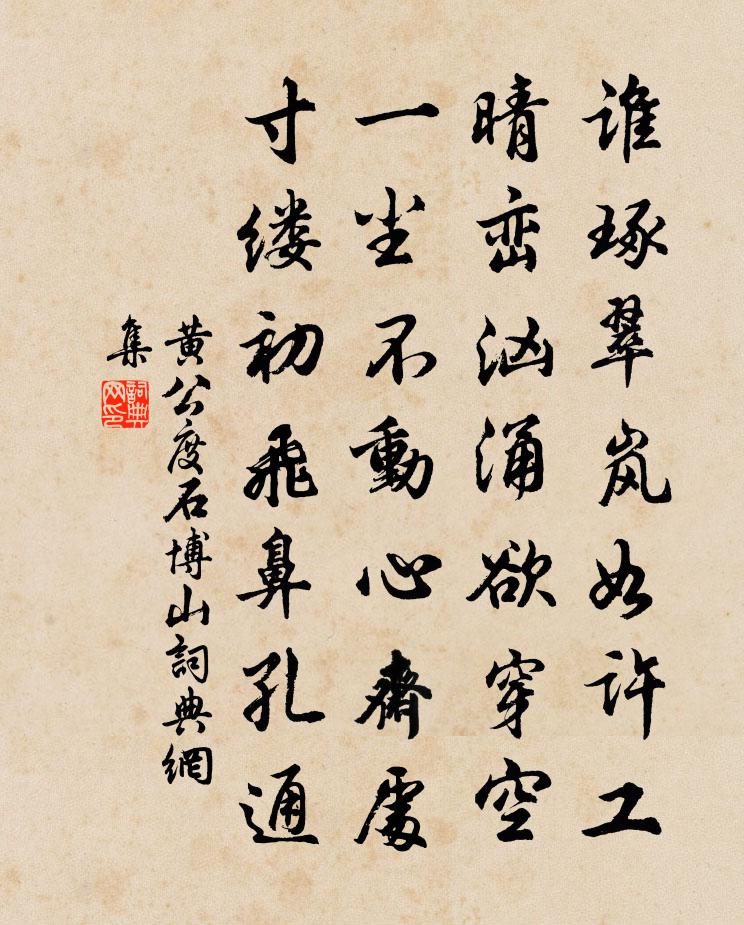 谁琢翠岚如许工
晴峦汹涌欲穿空
一尘不動心齋處
寸缕初飛鼻孔通
黄公度石博山詞典網
集
詞典
网印